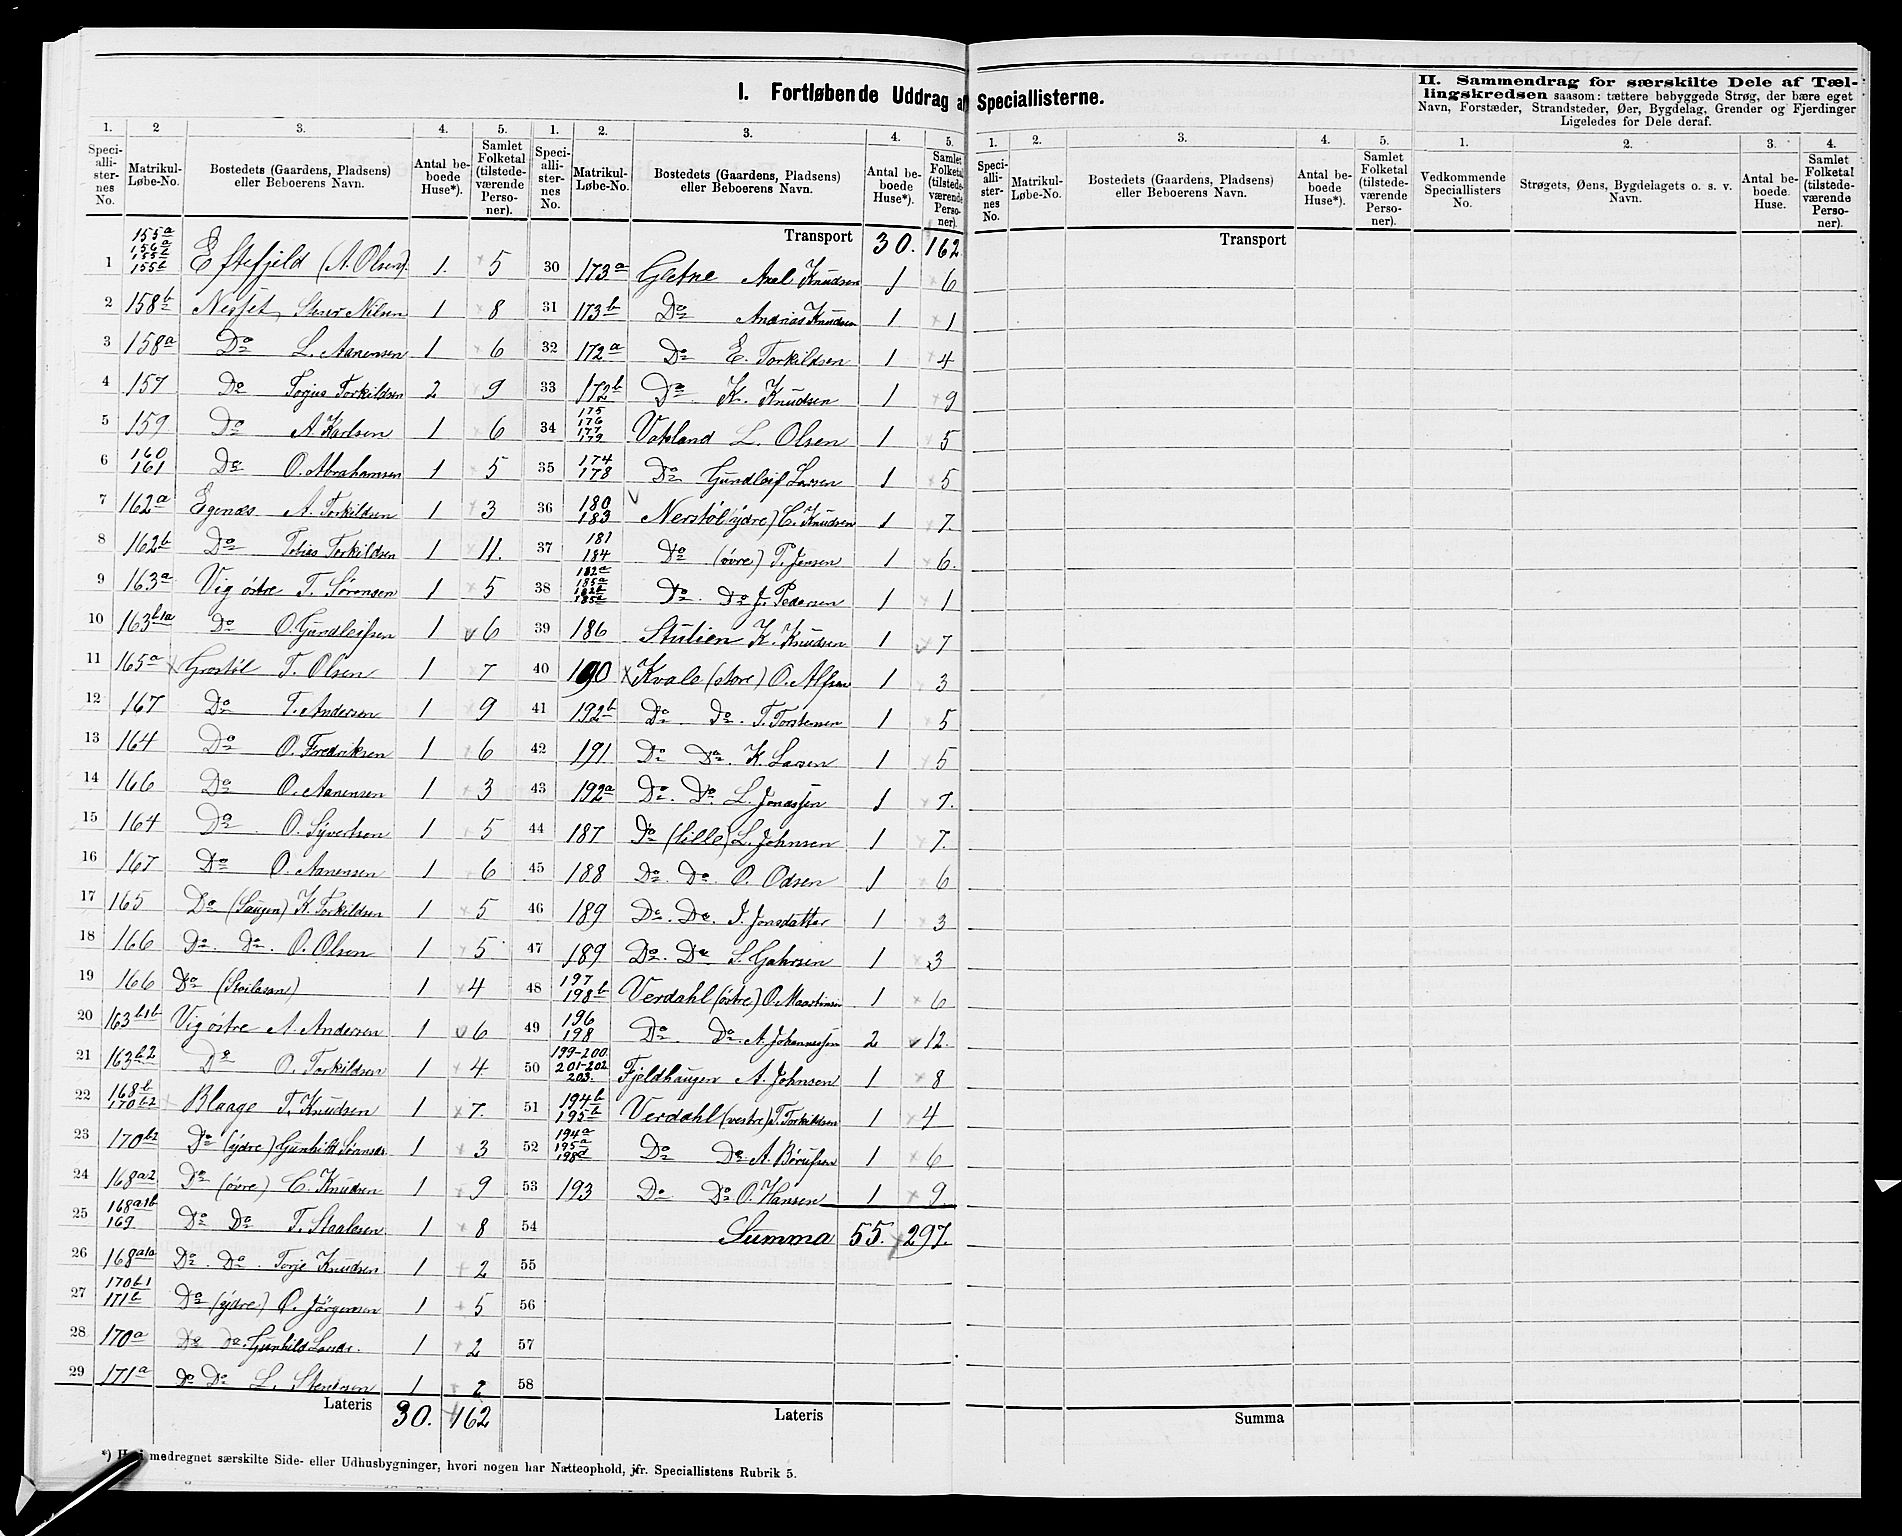 I. Fortløbende Uddrag af Speciallisterne.
II. Sammendrag for særskilte Dele af Tæl-
lingskredsen saasom: tættere bebyggede Strøg, der bære eget
Navn, Forstæder, Strandsteder, Øer, Bygdelag, Grender og Fjerdinger
Ligeledes for Dele deraf.
1. 2 3. 4. 5.
Speci-alli-ster-nes No. Matrikul-Løbe-No. Bostedets (Gaardens, Pladsens) eller Beboerens Navn. Antal be-boede Huse*). Samlet Folketal (tilstede-værende Perso-ner).
1 155a 156a 155b 155b Eftefjeld (A. Olsen). 1. 5
2 158b Nesset 1 8
3 158a Do L. Aanensen 1 6
4 157 Do Torjus Torkildsen 2 9
5 159 Do A. Karlsen 1 6
6 160 161 Do O. Abrahamsen 1 5
7 162a Egenæs A. Torkildsen 1 3
8 162b Do Tobias Torkildsen 1 11.
9 163a Vig östre T. Sörensen 1 5
10 163b1a Do O. Gundleifsen 1 6
11 165a Grostöl T. Olsen 1 7
12 167 Do T. Andersen 1 9
13 164 Do O. Fredriksen 1 6
14 166 Do O. Aanensen 1 3
15 164 Do O. Syvertsen 1 5
16 167 Do O. Aanensen 1 6
17 165 Do (Haugen) K. Torkildsen 1 5
18 166 Do. Do. O. Olsen 1 5
19 166 Do 1 4
20 163b1b Vig östre A. Andersen 1 6
21 163b2 Do O. Torkildsen 1 4
22 168b 170b2 Blaage T. Knudsen 1 7.
23 170b2 Do (ydre) Gunhild 1 3
24 168a2 Do (övre) C. Knudsen 1 9
25 168a1b 169 Do Do T. Staalesen 1 8
26 168a1a Do. Do. Torje Knudsen 1 2
27 170b1 171b Do (ydre) O. Jörgensen 1 5
28 170a Do Do. Gunhild 1 2
29 171a Do Do L. Stenersen 1 2
Lateris 30. 162
1. 2. 3. 4. 5.
Speci-alli-ster-nes No. Matrikul-Løbe-No. Bostedets (Gaardens, Pladsens) eller Beboerens Navn. Antal be-boede Huse*). Samlet Folketal (tilstede-værende Perso-ner).
Transport 30. 162
30 173a Axel Knudsen 1 6
31 173b Do Andrias Knudsen 1 1
32 172a Do E. Torkildsen 1 4
33 172b Do K. Knudsen 1 9
34 175 176 177 179 Vatsland L. Olsen 1 5
35 174 178 Do Gundleif Larsen 1 5
36 180 183 Nerstöl (ydre) C. Knudsen 1 7.
37 181 184 Do (övre) P. Jensen 1 6.
38 182a 185a 182b 185a Do. Do J. Pedersen 1 1
39 186 Stulien K. Knudsen 1 7
40 190 Kvale (store) O. Alfsen 1 3
41 192b Do Do. T. Torstensen 1 5
42 191 Do Do. K. Larsen 1 5
43 192a Do. Do L. Jonassen 1 7.
44 187 Do (lille) L. Johnsen 1 7.
45 188 Do. Do. O. Odsen 1 6
46 189 Do. Do. I. Jonsdatter 1 3
47 189 Do. Do 1 3
48 197 198b Verdahl (östre) O. Maartensen 1 6
49 196 198 Do. Do. A. Johannessen 2 12.
50 199-200 201-202 203. Fjeldhaugen A. Johnsen 1 8
51 194b 195b Verdahl (vestre) T. Torkildsen 1 4
52 194a 195a 198d Do Do A. 1 6
53 193 Do Do O. Hansen 1 9
54 Summa 55. 297.
55
56
57
58
Lateris
1. 2. 3. 4. 5.
Speci-alli-ster-nes No. Matrikul-Løbe-No. Bostedets (Gaardens, Pladsens) eller Beboerens Navn. Antal be-boede Huse*). Samlet Folketal (tilstede-værende Perso-ner).
Transport
Summa
1. 2. 3. 4.
Vedkommende Speciallisters No. Strøgets, Øens, Bygdelagets o. s. v. Navn. Antal be-boede Huse. Samlet Folketal (tilstede-værende Perso-ner).
medregnet særskilte Side- eller Udhusbygninger, hvori nogen har Natteophold, jfr. Speciallistens Rubrik 5.